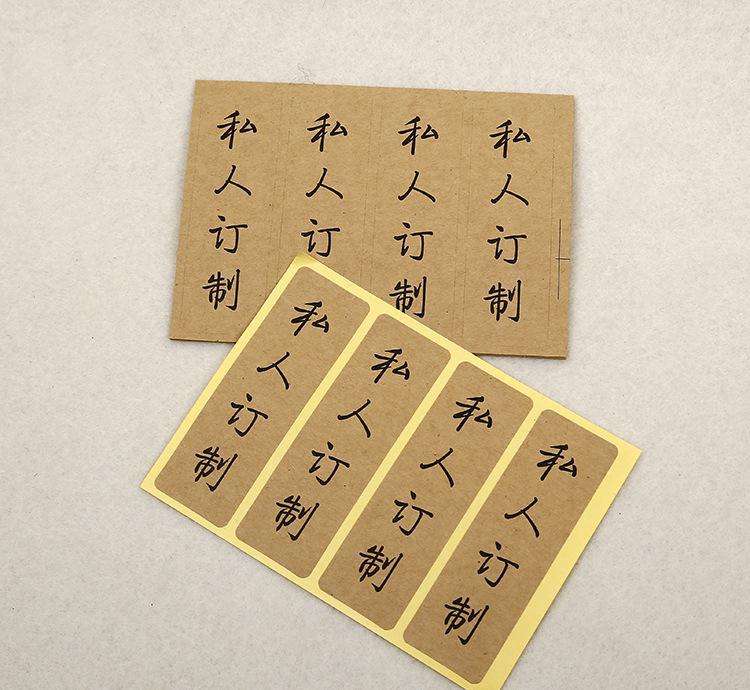 私人订制
私人订制
私人订制
私人订制
私人订制
私人订制
私人订制
私人订制